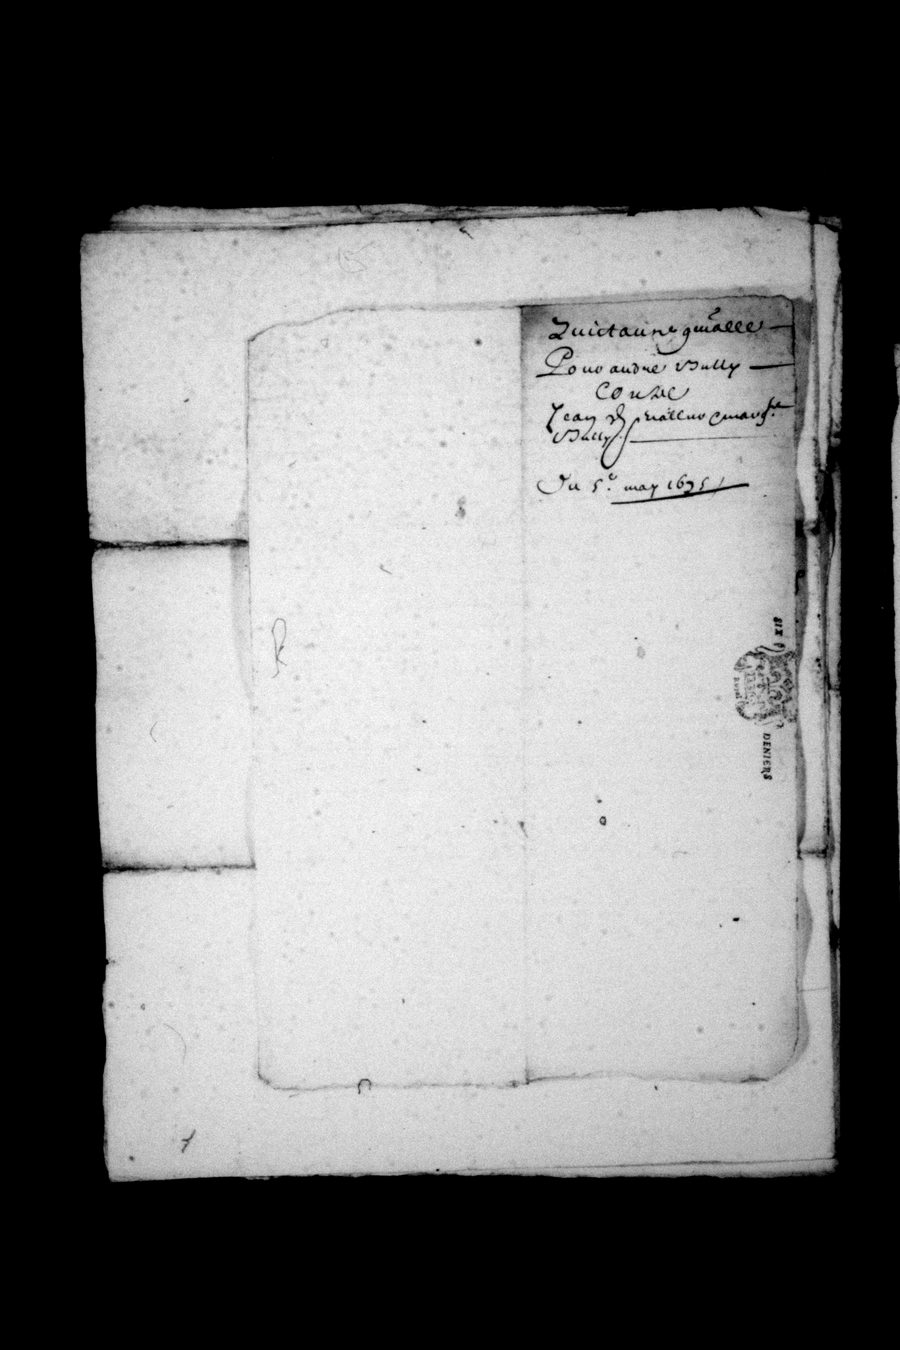 Quictance gnȃlle
Pour andré Bully
Contre
Jean
Bully
Du 5e. may 1675
SIX
DENIERS